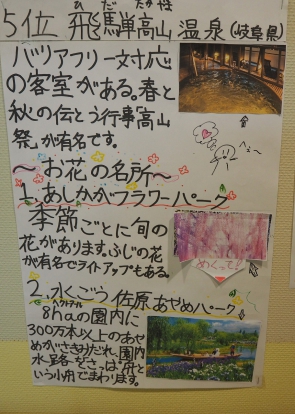 ひだ たかやま
5位 飛騨高山温泉(岐阜県)
バリアフリー対応
の客室がある。春と
秋の伝とう行事高山
祭が有名です。
へぇ〜
〜お花の名所〜
1.あしかがフラワーパーク
季節ごとに旬の
花があります。ふじの花
が有名でライトアップもある。
めくって!
2.水ごう佐原あやめパーク
ヘクタール
8haの園内に
300万本以上のあや
めがさきみだれ、園内
水路をさっぱ舟と
いう小舟でまわります。